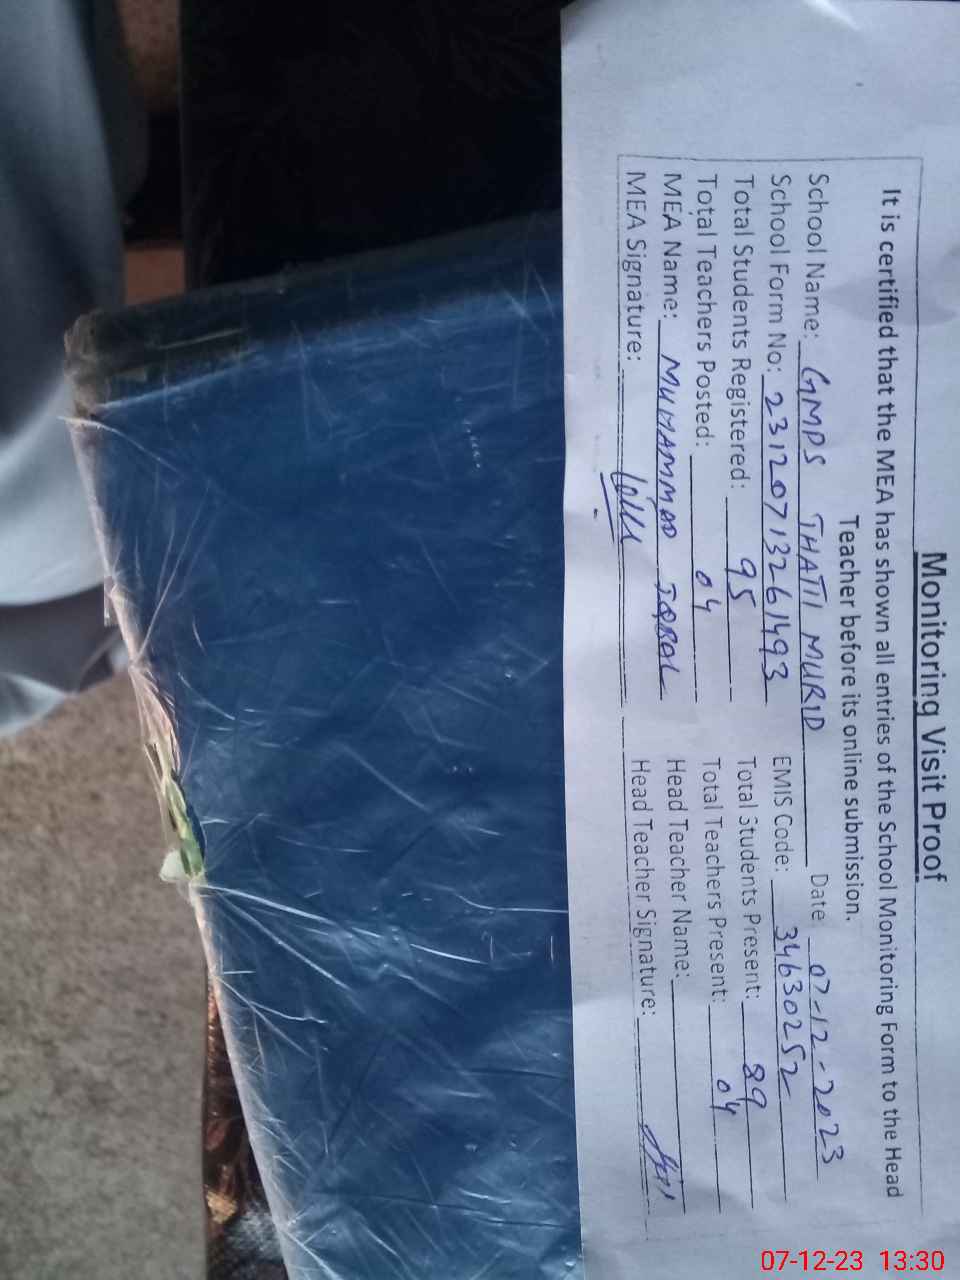 Monitoring Visit Proof
It is certified that the MEA has shown all entries of the School Monitoring Form to the Head
Teacher before its online submission.
School Name: GMPS THATII MURID Date 07-12-2023
School Form No: 23120713261493 EMIS Code: 34630252
Total Students Registered: 95 Total Students Present: 89
Total Teachers Posted: 04 Total Teachers Present: 04
MEA Name: MUHAMMAD IQBAL Head Teacher Name:
MEA Signature: Head Teacher Signature:
07-12-23 13:30